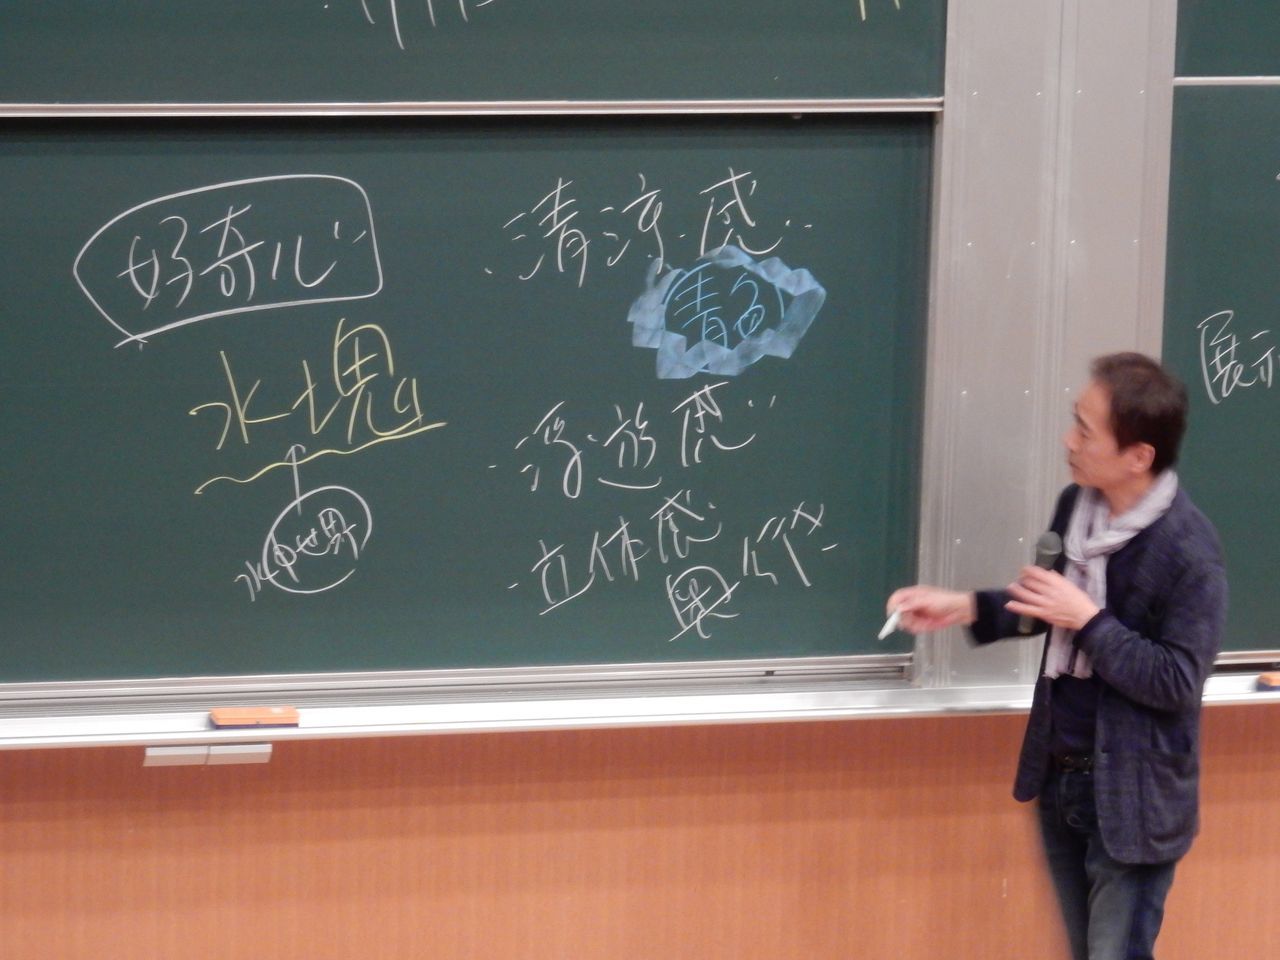 好奇心
水塊
水中世界
清涼感
青色
浮遊感
立体感
展示